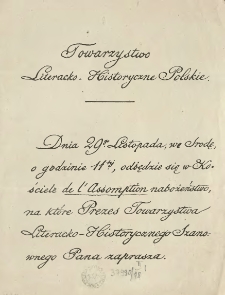 Towarzystwo
Literacko-Historyczne Polskie.
Dnia 29go Listopada, we Srodę,
o godzinie 11tej, odbędzie się w Ko-
ściele de l'Assomption nabożeństwo,
na które Prezes Towarzystwa
Literacko-Historycznego Szano-
wnego Pana zaprasza.